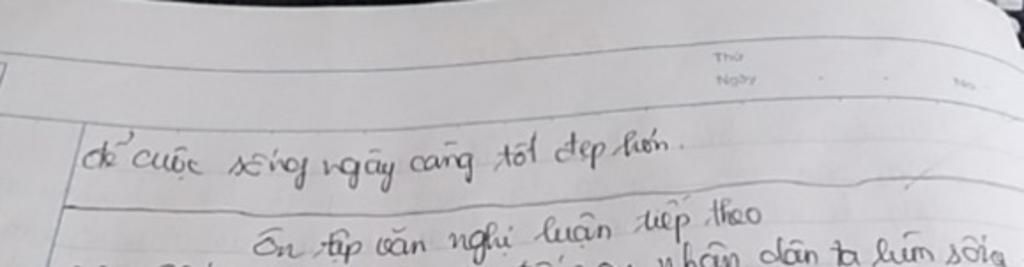 Thứ
Ngày No
để cuộc sống ngày càng tốt đẹp hơn.
Ôn tập văn nghị luận tiếp theo
nhân dân ta